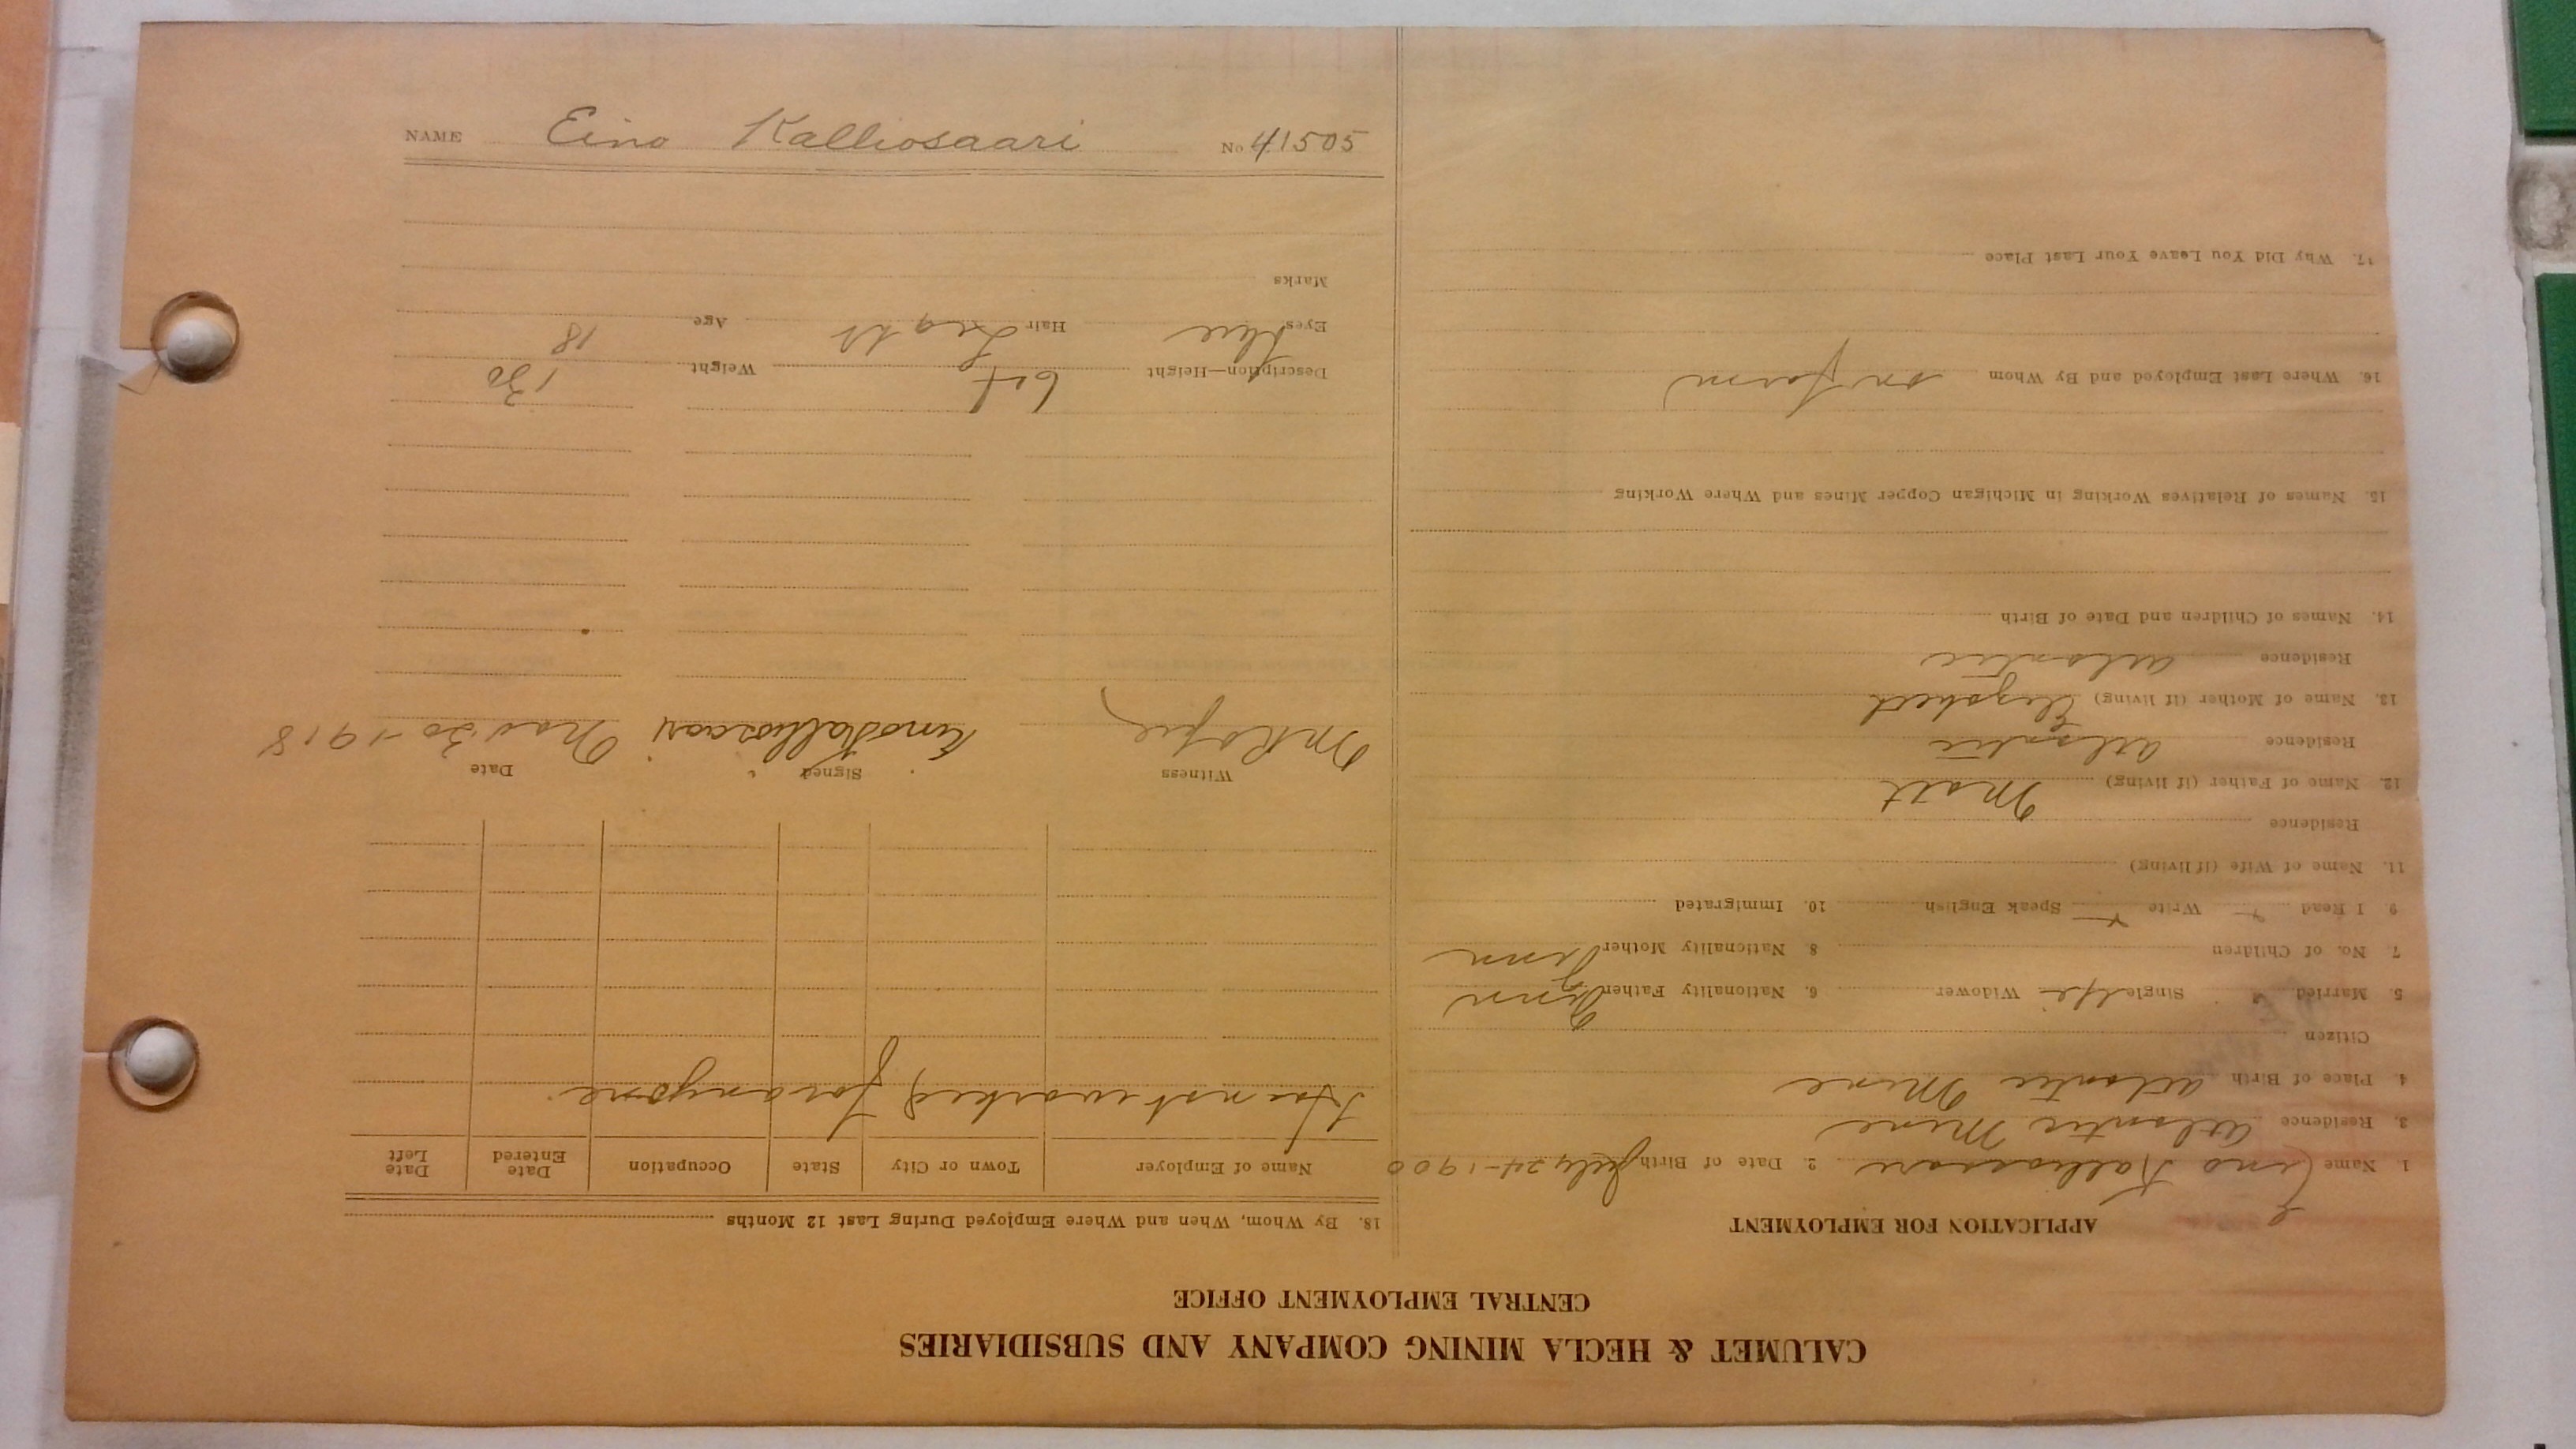 CALUMET & HECLA MINING COMPANY AND SUBSIDIARIES
CENTRAL EMPLOYMENT OFFICE
APPLICATION FOR EMPLOYMENT
1. Name Eino Kalliosaari 2. Date of Birth July 24-1900
3. Residence Atlantic Mine
4. Place of Birth Atlantic Mine
Citizen
5. Married Single Widower 6. Nationality Father Finn
7. No. of Children 8 Nationality Mother Finn
9 I Read Write Speak English 10. Immigrated
11. Name of Wife (if living)
Residence
12. Name of Father (if living) Matt
Residence Atlantic
13. Name of Mother (if living)
Residence Atlantic
14. Names of Children and Date of Birth
15. Names of Relatives Working in Michigan Copper Mines and Where Working
16. Where Last Employed and By Whom on farm
17. Why Did You Leave Your Last Place
18. By Whom, When and Where Employed During Last 12 Months
Name of Employer Town or City State Occupation Date Entered Date Left
Has not worked for anyone
Witness Signed Date
Eino Kalliosaari Nov 30-1918
Description—Height 6 ft Weight 130
Eyes Blue Hair Light Age 18
Marks
NAME Eino Kalliosaari No 41505